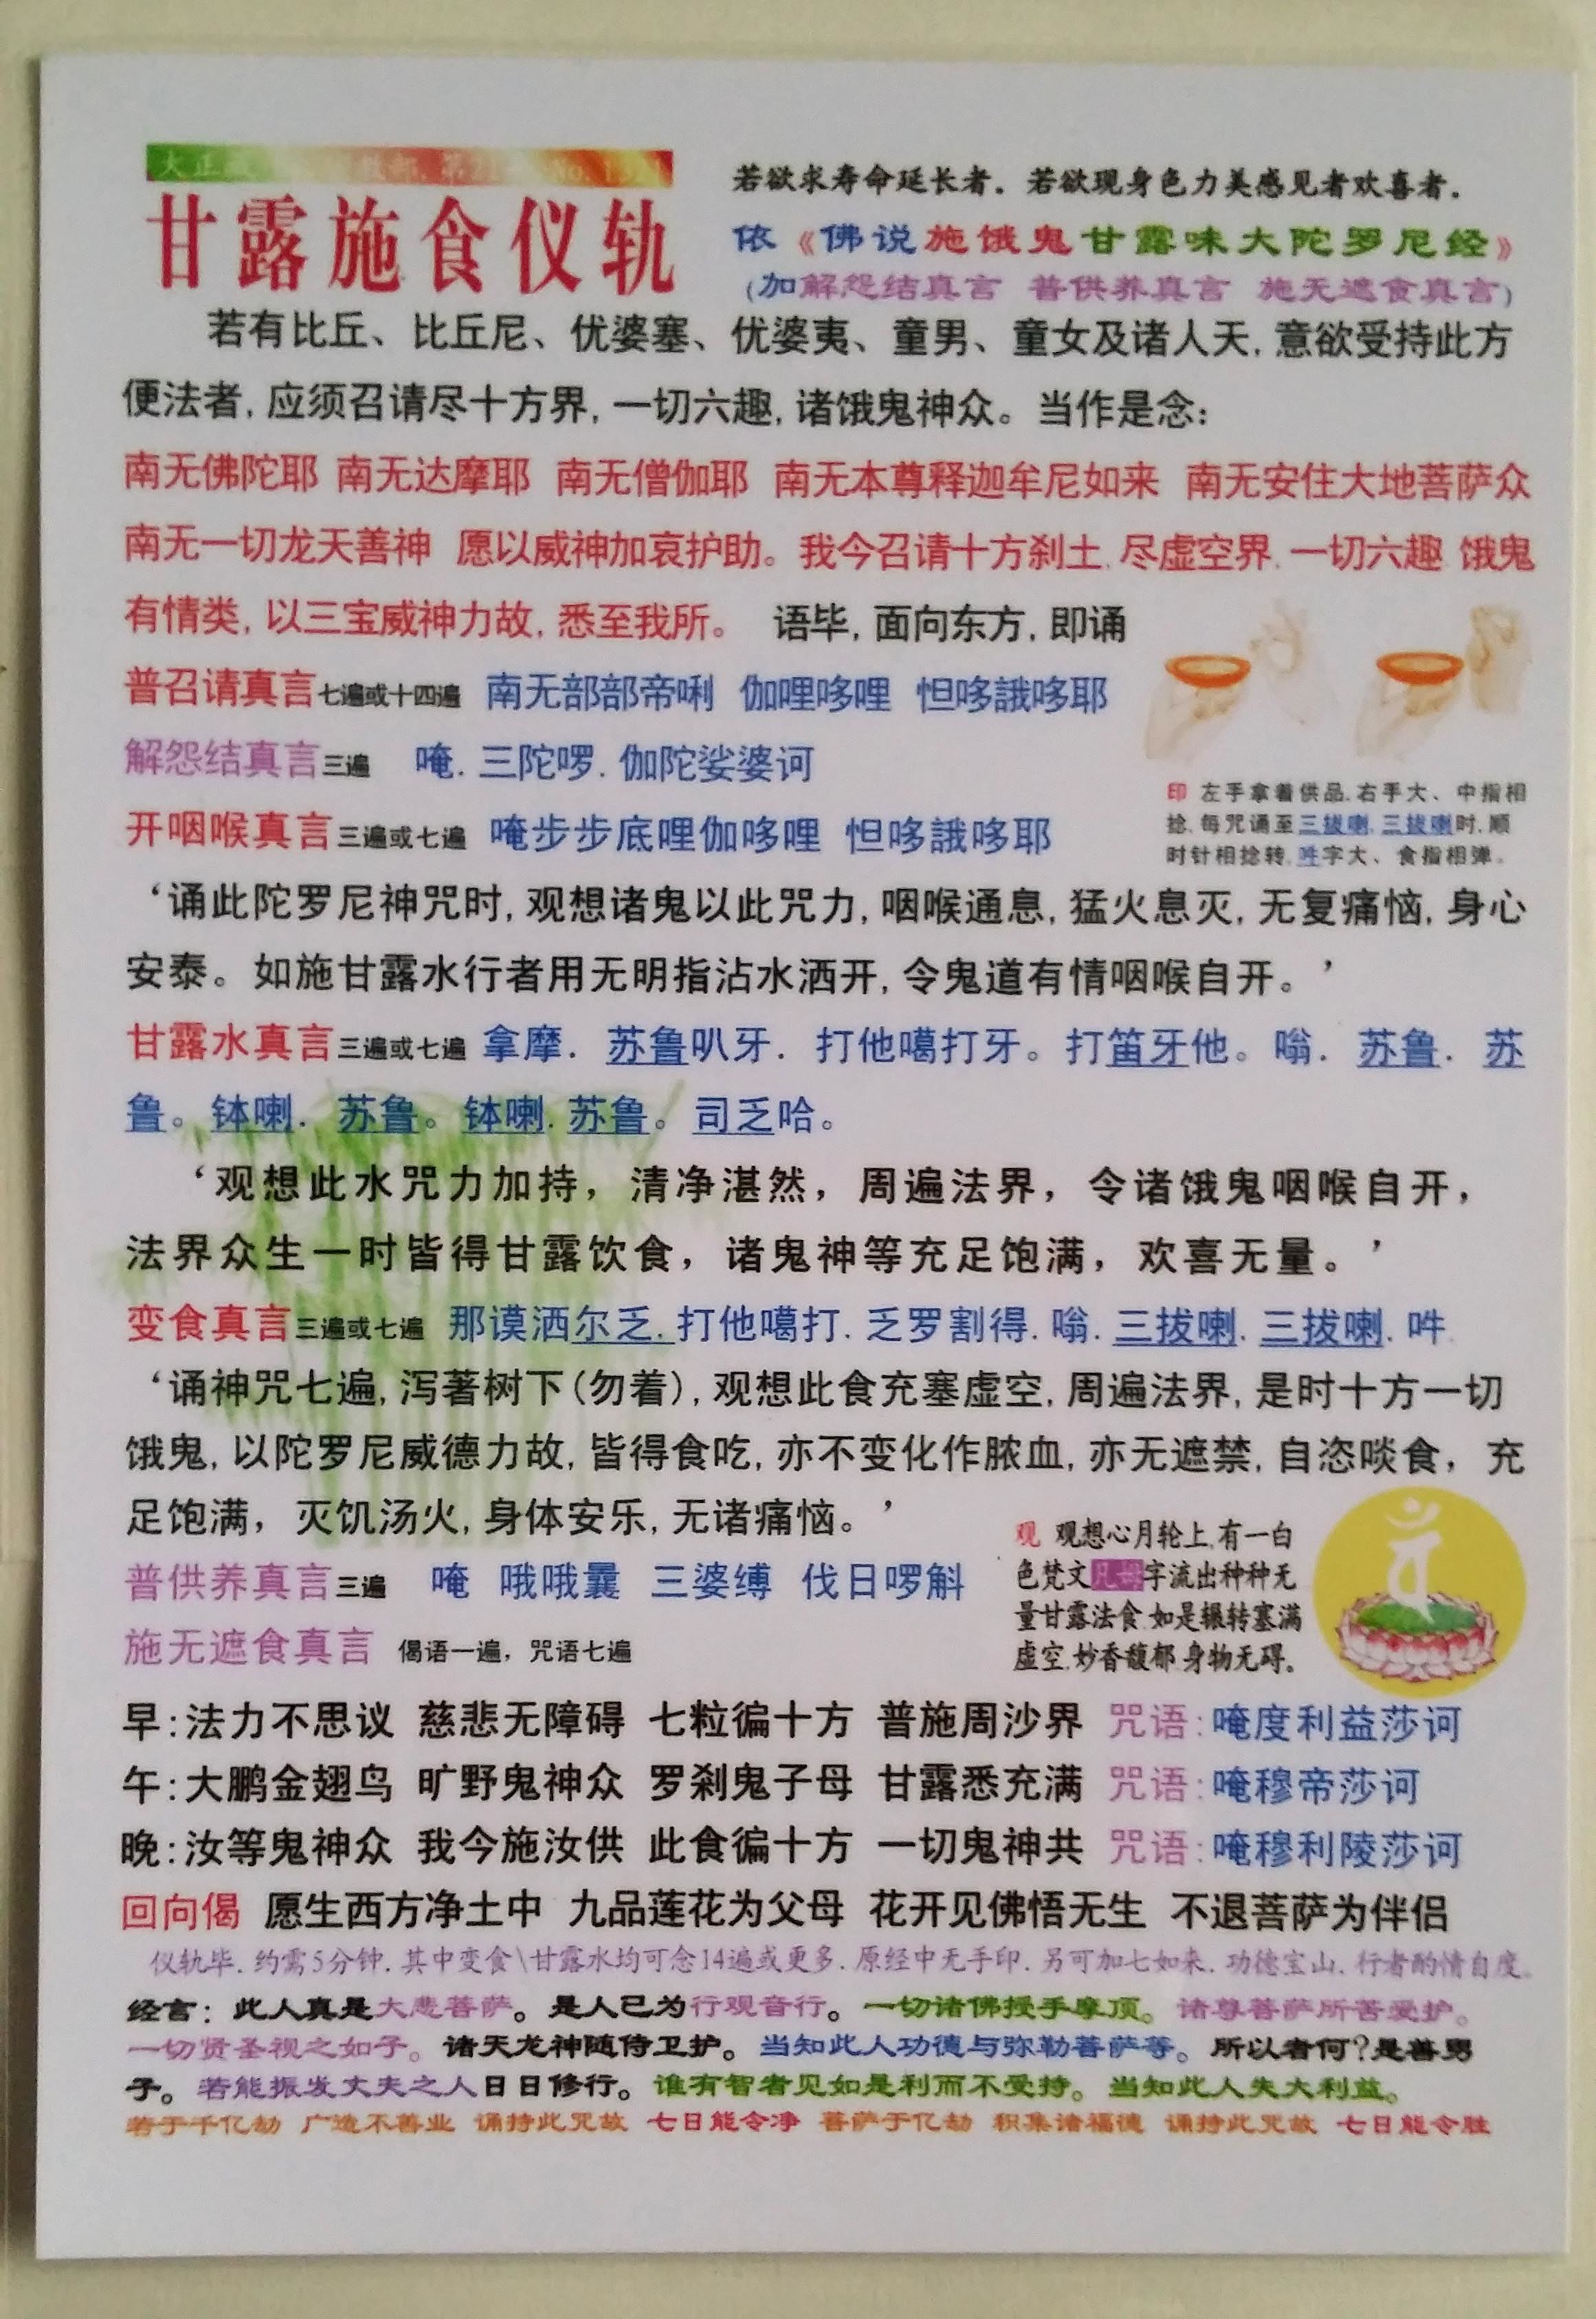 甘露施食仪轨
若欲求寿命延长者．若欲现身色力美感见者欢喜者．
依《佛说施饿鬼甘露味大陀罗尼经》
(加解怨结真言 普供养真言 施无遮食真言)
若有比丘、比丘尼、优婆塞、优婆夷、童男、童女及诸人天, 意欲受持此方
便法者, 应须召请尽十方界, 一切六趣, 诸饿鬼神众。当作是念:
南无佛陀耶 南无达摩耶 南无僧伽耶 南无本尊释迦牟尼如来 南无安住大地菩萨众
南无一切龙天善神 愿以威神加哀护助。我今召请十方刹土. 尽虚空界. 一切六趣 饿鬼
有情类, 以三宝威神力故, 悉至我所。 语毕, 面向东方, 即诵
普召请真言七遍或十四遍 南无部部帝唎 伽哩哆哩 怛哆誐哆耶
解怨结真言三遍 唵. 三陀啰. 伽陀娑婆诃
印 左手拿着供品. 右手大、中指相
捻. 每咒诵至三拔喇. 三拔喇时. 顺
时针相捻转. 吽字大、食指相弹.
开咽喉真言三遍或七遍 唵步步底哩伽哆哩 怛哆誐哆耶
‘诵此陀罗尼神咒时, 观想诸鬼以此咒力, 咽喉通息, 猛火息灭, 无复痛恼, 身心
安泰。如施甘露水行者用无明指沾水洒开, 令鬼道有情咽喉自开。’
甘露水真言三遍或七遍 拿摩. 苏鲁叭牙. 打他噶打牙。打笛牙他。嗡. 苏鲁. 苏
鲁。钵喇. 苏鲁。钵喇. 苏鲁。司乏哈。
‘观想此水咒力加持，清净湛然，周遍法界，令诸饿鬼咽喉自开，
法界众生一时皆得甘露饮食，诸鬼神等充足饱满，欢喜无量。’
变食真言三遍或七遍 那谟洒尔乏. 打他噶打. 乏罗割得. 嗡. 三拔喇. 三拔喇. 吽
‘诵神咒七遍, 泻著树下(勿着), 观想此食充塞虚空, 周遍法界, 是时十方一切
饿鬼, 以陀罗尼威德力故, 皆得食吃, 亦不变化作脓血, 亦无遮禁, 自恣啖食，充
足饱满，灭饥汤火, 身体安乐, 无诸痛恼。’
观 观想心月轮上.有一白
色梵文字流出种种无
量甘露法食.如是辗转塞满
虚空.妙香馥郁.身物无碍.
普供养真言三遍 唵 哦哦曩 三婆缚 伐日啰斛
施无遮食真言 偈语一遍，咒语七遍
早:法力不思议 慈悲无障碍 七粒徧十方 普施周沙界 咒语:唵度利益莎诃
午:大鹏金翅鸟 旷野鬼神众 罗刹鬼子母 甘露悉充满 咒语:唵穆帝莎诃
晚:汝等鬼神众 我今施汝供 此食徧十方 一切鬼神共 咒语:唵穆利陵莎诃
回向偈 愿生西方净土中 九品莲花为父母 花开见佛悟无生 不退菩萨为伴侣
仪轨毕. 约需5分钟. 其中变食\甘露水均可念14遍或更多. 原经中无手印. 另可加七如来. 功德宝山. 行者酌情自度.
经言：此人真是大悲菩萨。是人已为行观音行。一切诸佛授手摩顶。诸尊菩萨所苦爱护。
一切贤圣视之如子。诸天龙神随侍卫护。当知此人功德与弥勒菩萨等。所以者何?是善男
子。若能振发丈夫之人日日修行。谁有智者见如是利而不受持。当知此人失大利益。
若于千亿劫 广造不善业 诵持此咒故 七日能令净 菩萨于亿劫 积集诸福德 诵持此咒故 七日能令胜